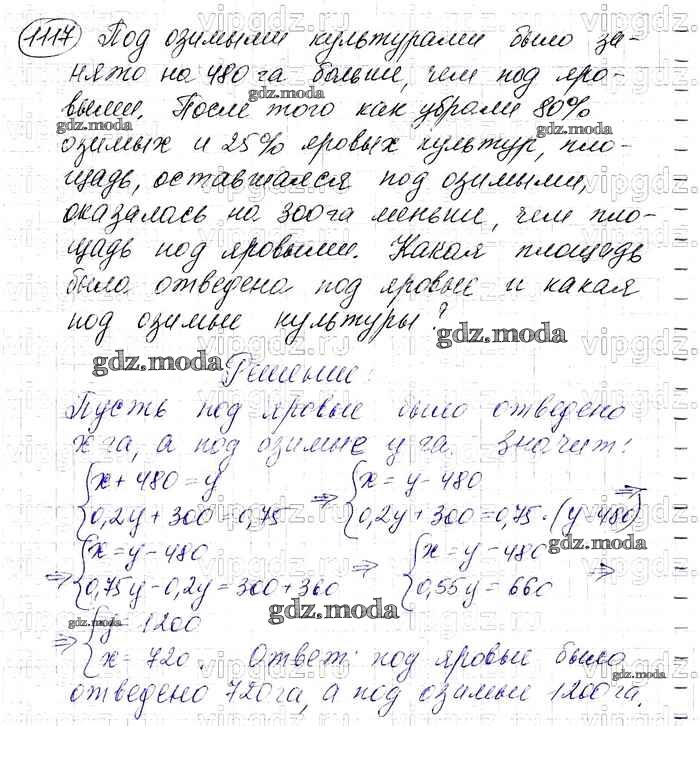 1117 Под озимыми культурами было за-
нято на 480 га больше, чем под яро-
выми. После того как убрали 80%
озимых и 25% яровых культур, пло-
щадь, оставшаяся под озимыми,
оказалась на 300 га меньше, чем пло-
щадь под яровыми. Какая площадь
была отведена под яровые и какая
под озимые культуры?
Решение:
Пусть под яровые было отведено
x га, а под озимые y га. Значит:
{x + 480 = y ⇒ {x = y - 480 ⇒
{0,2y + 300 = 0,75 {0,2y + 300 = 0,75 · (y-480)
⇒ {x = y - 480 ⇒ {x = y - 480 ⇒
{0,75y - 0,2y = 300 + 360 {0,55y = 660
⇒ {y = 1200
{x = 720. Ответ: под яровые было
отведено 720 га, а под озимые 1200 га.
gdz.moda
vipgdz.ru